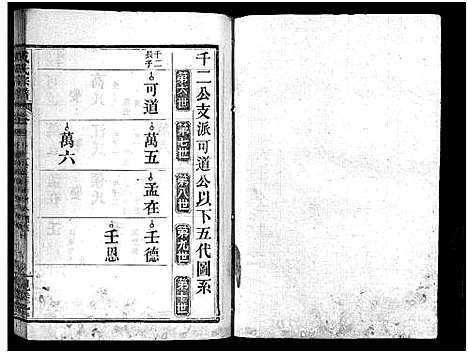 千二公支派可道公以下五代圖系
第六世
第七世
第八世
第九世
第十世
千二長子
可道
萬五
孟在
壬德
萬六
壬恩